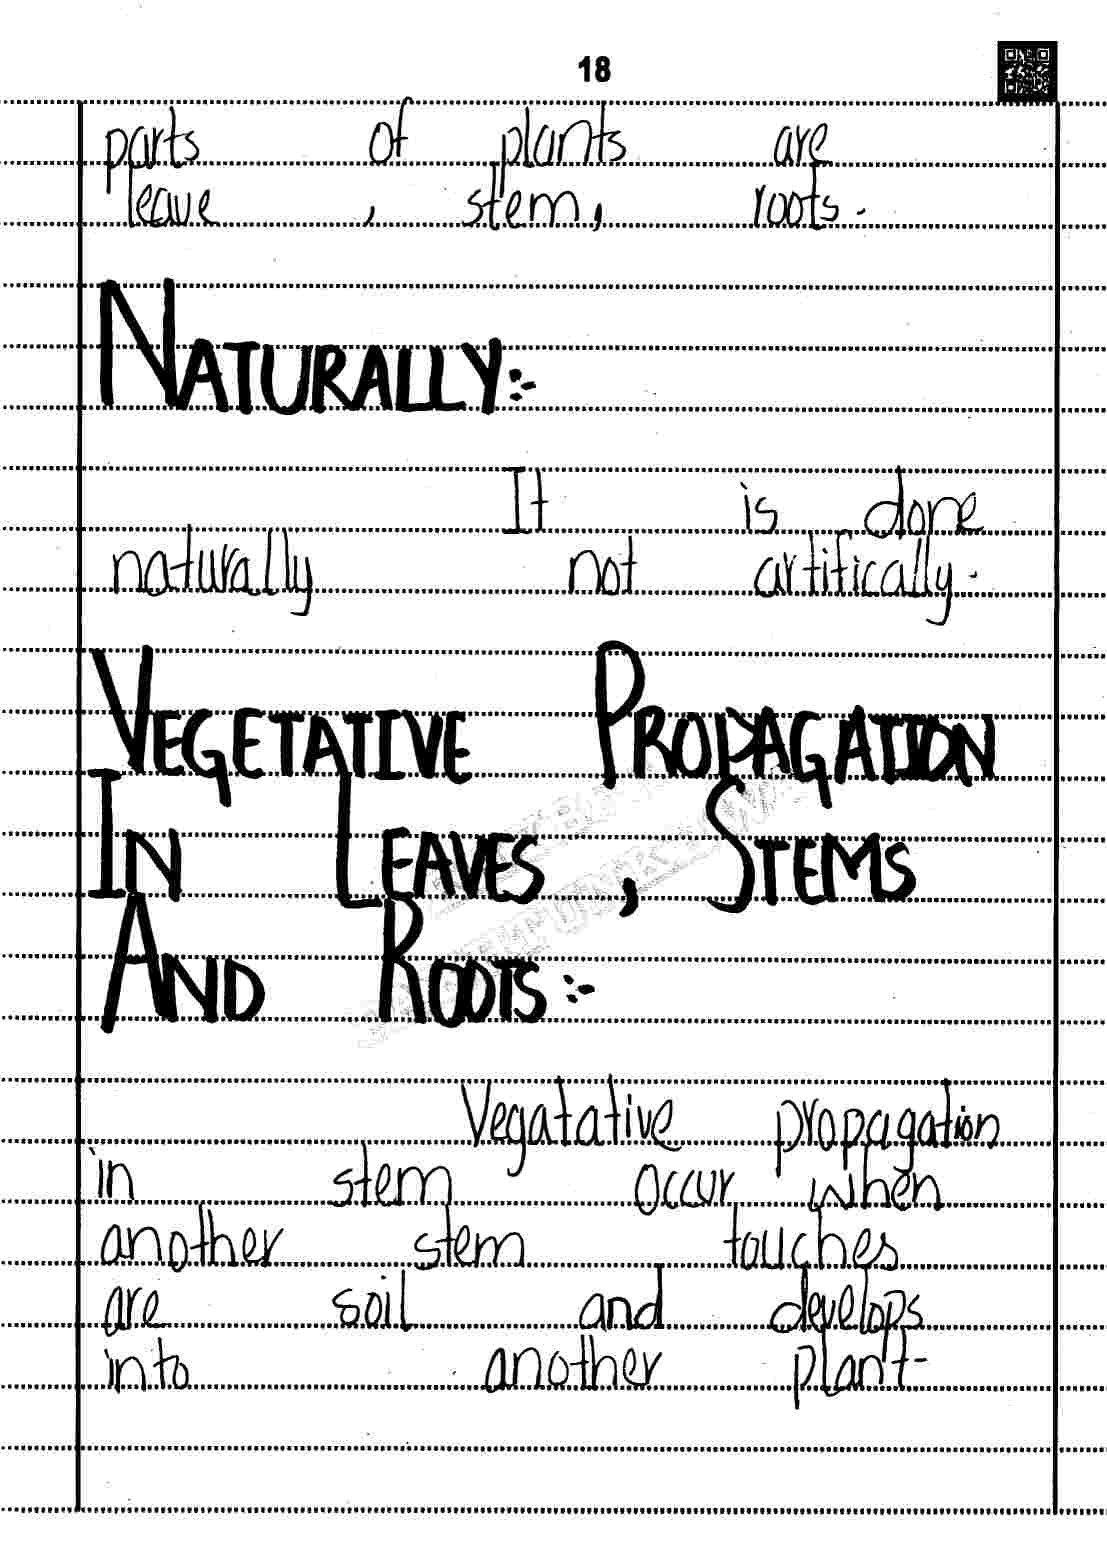 18
parts of plants are
leave , stem, roots.
NATURALLY:-
It is done
naturally not artifically.
VEGETATIVE PROPAGATION
IN LEAVES, STEMS
AND ROOTS:-
Vegatative propagation
in stem occur when
another stem touches
are soil and develops
into another plant-